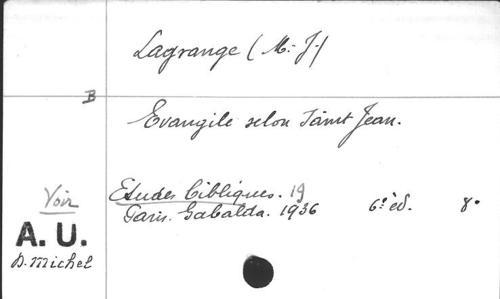 Lagrange (M.-J.)
B
Evangile selon Saint Jean.
Etudes bibliques. 19
Paris. Gabalda. 1936 6e éd. 8°
Voir
A. U.
D. Michel